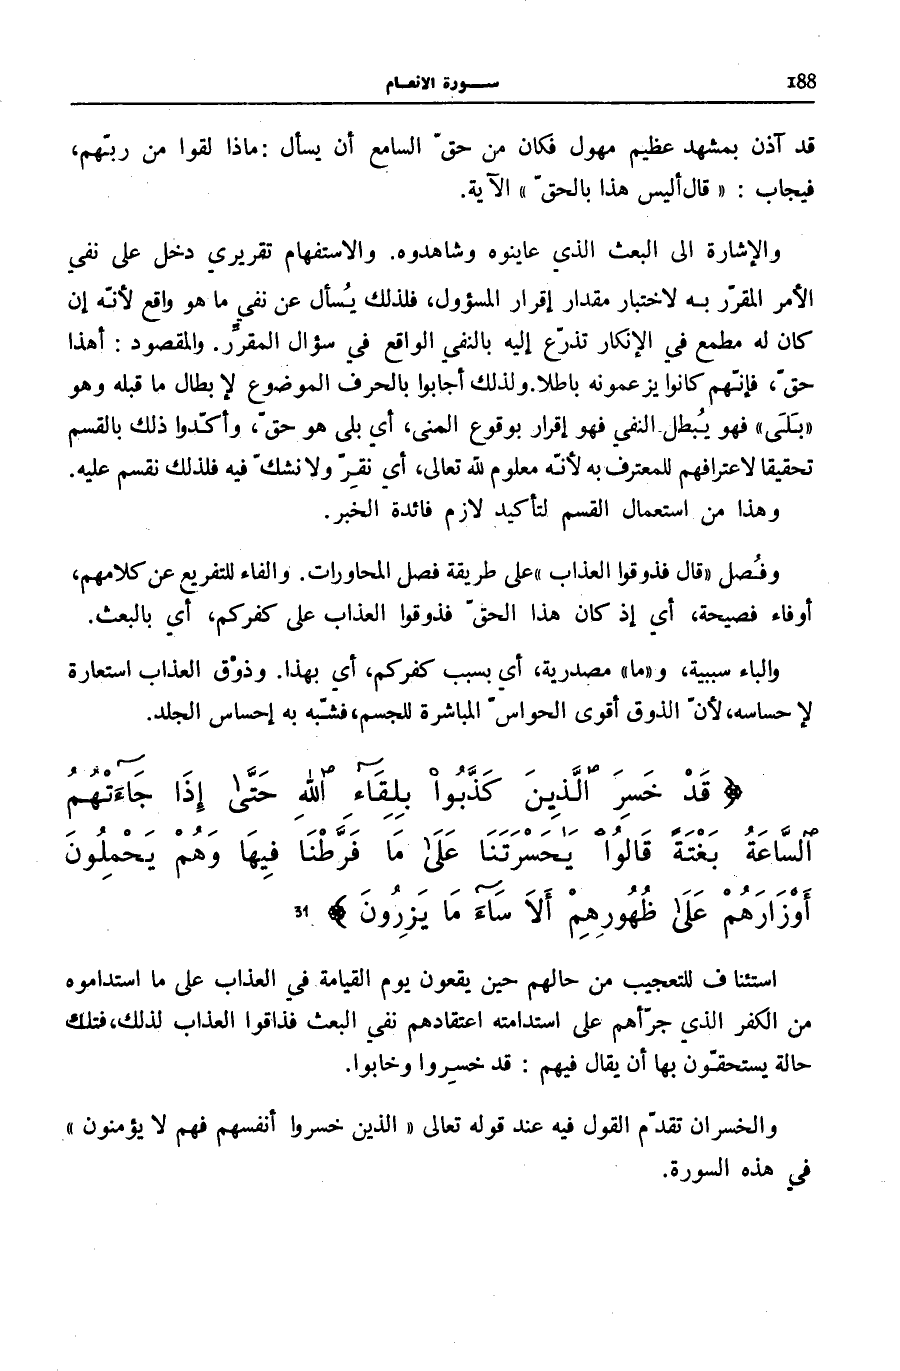 188
ســـورة الانعـام
قد آذن بمشهد عظيم مهول فكان من حقّ السامع أن يسأل : ماذا لقوا من ربّهم،
فيجاب : « قال أليس هذا بالحقّ » الآية.
والإشارة الى البعث الذي عاينوه وشاهدوه. والاستفهام تقريري دخل على نفي
الأمر المقرّر بـه لاختبار مقدار إقرار المسؤول، فلذلك يُسأل عن نفي ما هو واقع لأنّه إن
كان له مطمع في الإنكار تذرّع إليه بالنفي الواقع في سؤال المقرِّر. والمقصود : أهذا
حقّ، فإنّهم كانوا يزعمونه باطلا. ولذلك أجابوا بالحرف الموضوع لإبطال ما قبله وهو
«بَلَى» فهو يُبطل النفي فهو إقرار بوقوع المنى، أي بلى هو حقّ، وأكّدوا ذلك بالقسم
تحقيقا لاعترافهم للمعترف به لأنّه معلوم لله تعالى، أي نقـِرّ ولا نشكّ فيه فلذلك نقسم عليه.
وهذا من استعمال القسم لتأكيد لازم فائدة الخبر.
وفُصل «قال فذوقوا العذاب» على طريقة فصل المحاورات. والفاء للتفريع عن كلامهم،
أو فاء فصيحة، أي إذ كان هذا الحقّ فذوقوا العذاب على كفركم، أي بالبعث.
والباء سببية، و«ما» مصدرية، أي بسبب كفركم، أي بهذا. وذوْق العذاب استعارة
لإحساسه، لأنّ الذوق أقوى الحواسّ المباشرة للجسم، فشبّه به إحساس الجلد.
﴿ قَدْ خَسِرَ ٱلَّذِينَ كَذَّبُواْ بِلِقَآءِ ٱللَّهِ حَتَّىٰ إِذَا جَآءَتْهُمُ
ٱلسَّاعَةُ بَغْتَةً قَالُواْ يَٰحَسْرَتَنَا عَلَىٰ مَا فَرَّطْنَا فِيهَا وَهُمْ يَحْمِلُونَ
أَوْزَارَهُمْ عَلَىٰ ظُهُورِهِمْ أَلَا سَآءَ مَا يَزِرُونَ ﴾ 31
استئناف للتعجيب من حالهم حين يقعون يوم القيامة في العذاب على ما استداموه
من الكفر الذي جرّأهم على استدامته اعتقادهم نفي البعث فذاقوا العذاب لذلك، فتلك
حالة يستحقّون بها أن يقال فيهم : قد خسـروا وخابوا.
والخسران تقدّم القول فيه عند قوله تعالى « الذين خسروا أنفسهم فهم لا يؤمنون »
في هذه السورة.